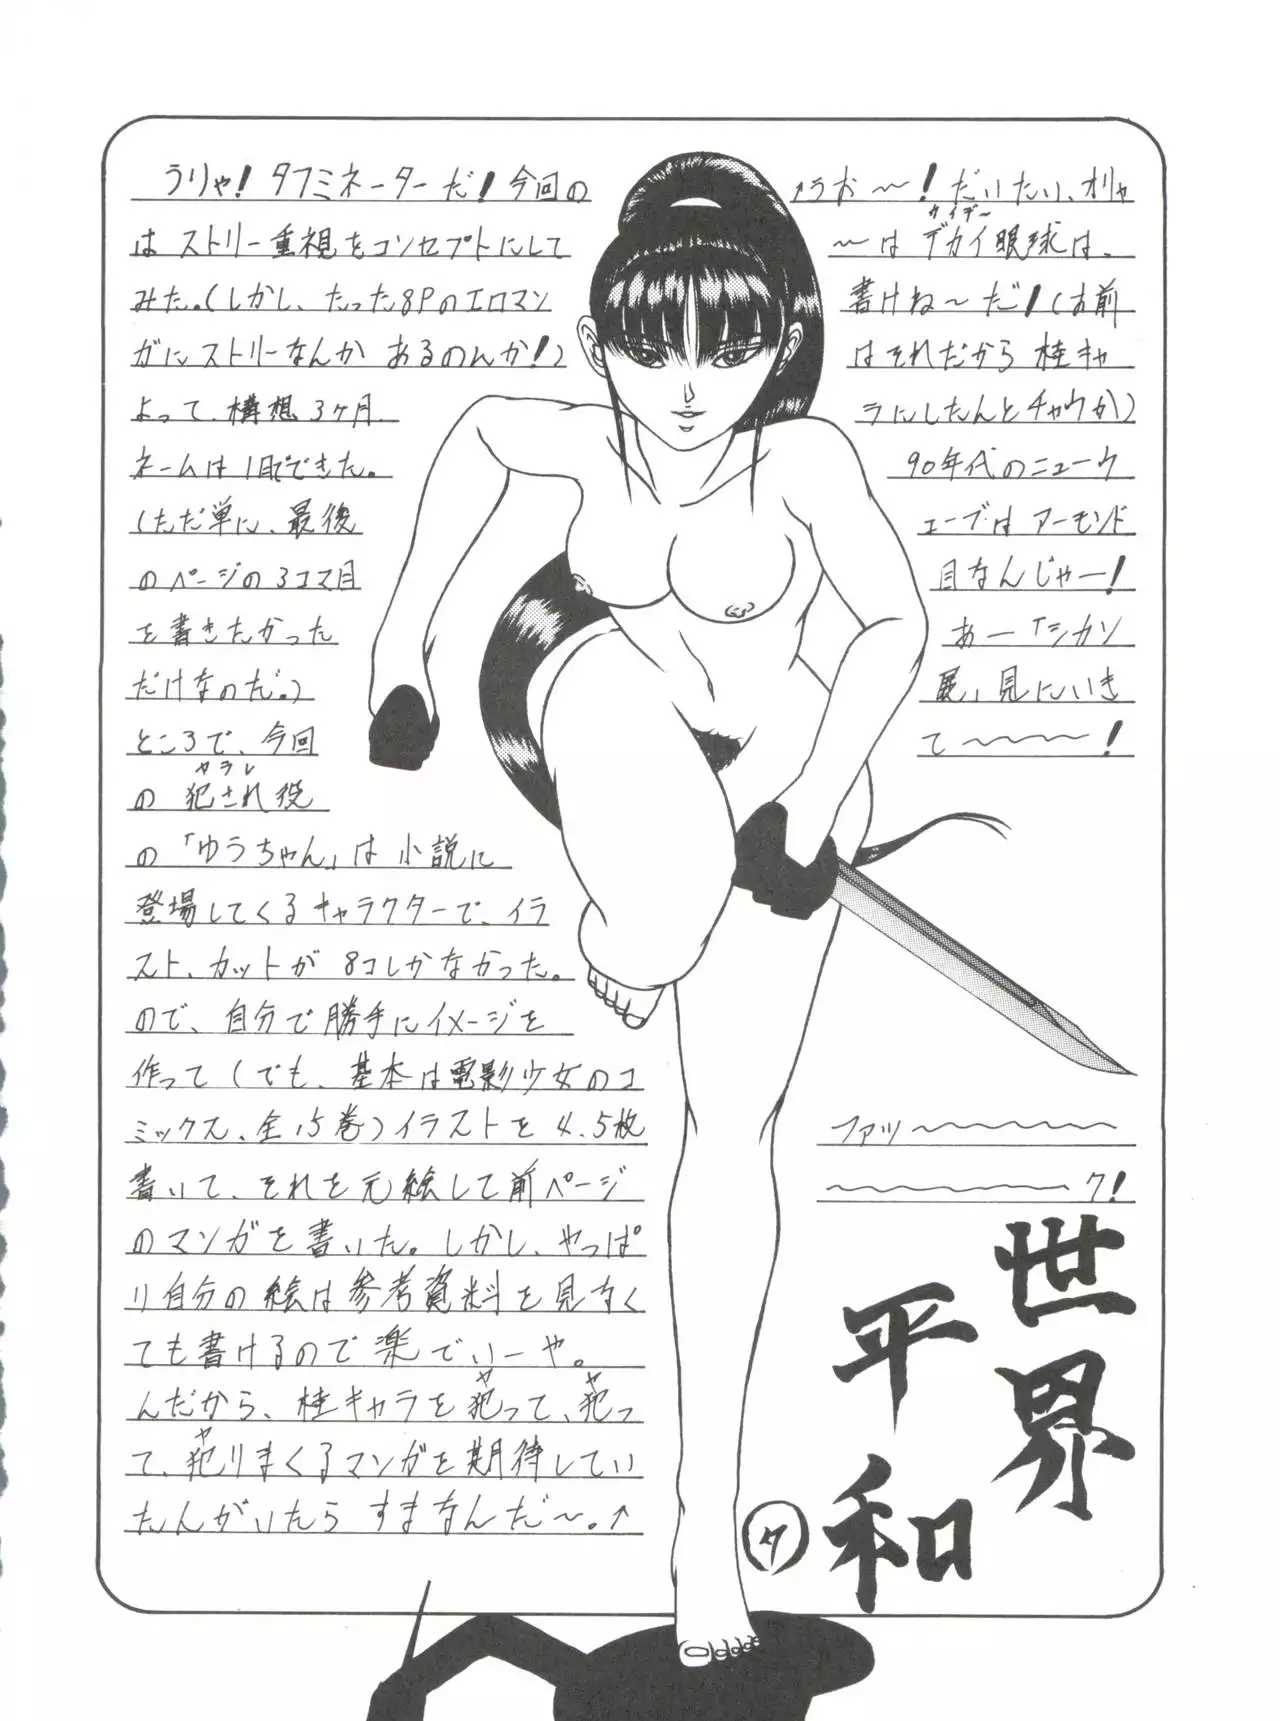 うりゃ!タフミネーターだ!今回の
はストリー重視をコンセプトにして
みた。(しかし、たった8Pのエロマン
ガにストリーなんかあるのんか!)
よって、構想3ケ月、
ネームは1日でできた。
(ただ単に、最後
のページの3コマ目
を書きたかった
だけなのだ。)
ところで、今回
ヤラレ
の犯され役
の「ゆうちゃん」は小説に
登場してくるキャラクターで、イラ
スト、カットが8コしかなかった。
ので、自分で勝手にイメージを
作って(でも、基本は電影少女のコ
ミックス、全15巻)イラストを4、5枚
書いて、それを元絵して前ページ
のマンガを書いた。しかし、やっぱ
り自分の絵は参考資料を見なく
ても書けるので楽でいーや。
ヤ ヤ
んだから、桂キャラを犯って、犯っ
ヤ
て、犯りまくるマンガを期待してい
たんがいたらすまなんだ〜。↑
↑うお〜〜!だいたい、オリャ
〜〜はデカイ眼球は、
書けね〜だ!(お前
はそれだから桂キャ
ラにしたんとチャウか)
90年代のニューウ
ェーブはアーモンド
目なんじゃー!
あー「シカソ
展」見にいき
て〜〜〜〜!
ファッ〜〜〜〜〜〜
〜〜〜〜〜〜〜ク!
世界
平和
タ